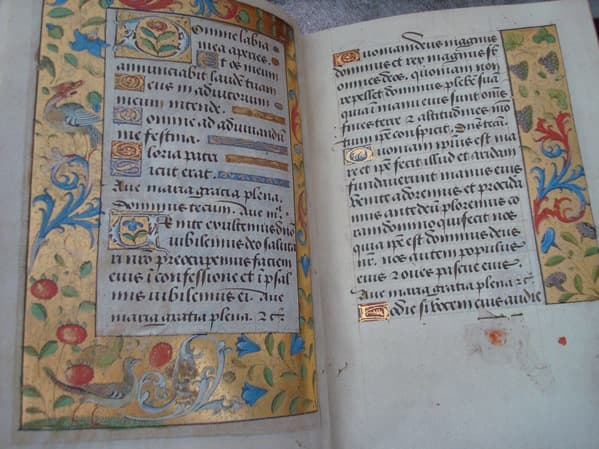 Domine labia
mea aperies.
Et os meum
annunciabit laudē tuam
Deus in adiutorium
meum intende.
Domine ad adiuuandū
me festina.
Gloria patri
Sicut erat.
Aue maria gratia plena.
Dominus tecum. Aue m̄.
Uenite exultemus dn̄o
iubilemus deo saluta
ri nr̄o preoccupemus faciem
eius ī confessione et ī psal
mis iubilemus ei. Aue
maria gratia plena. ⁊c̄
Quoniam deus magnus
dominus et rex magnus sr̄
omnes deos, quoniam non
repellet dominus plebē suā
quia ī manu eius sunt om̄s
fines terre ⁊ altitudines mō
tium ip̄e conspicit. Dn̄s tecū.
Quoniam ip̄ius est ma
re et ip̄e fecit illud et aridam
fundauerunt manus eius
uenite adoremus et procida
mus ante deū ploremus co
ram domino qui fecit nos
quia ip̄e est dominus deus
nr̄. nos autem populus
eius ⁊ oues pascue eius.
Aue maria gratia plena ⁊c̄
Hodie si uocem eius audie